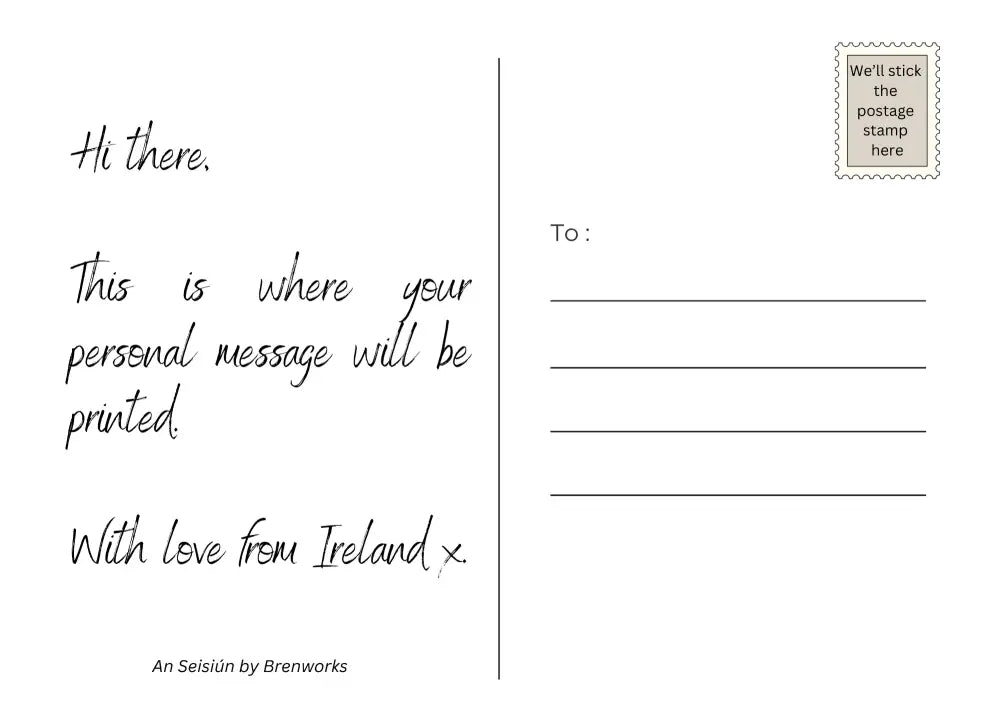 Hi there,
This is where your
personal message will be
printed.
With love from Ireland x.
An Seisiún by Brenworks
We'll stick
the
postage
stamp
here
To :